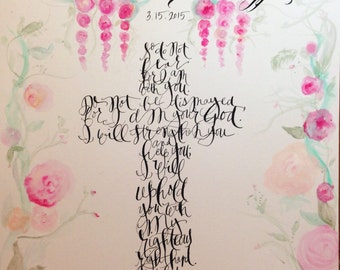 3.15.2015
So do not
fear
for I am
with you.
Do not be dismayed
for I am your God.
I will strengthen you
and
help you
I will
uphold
you with
my
righteous
right hand.